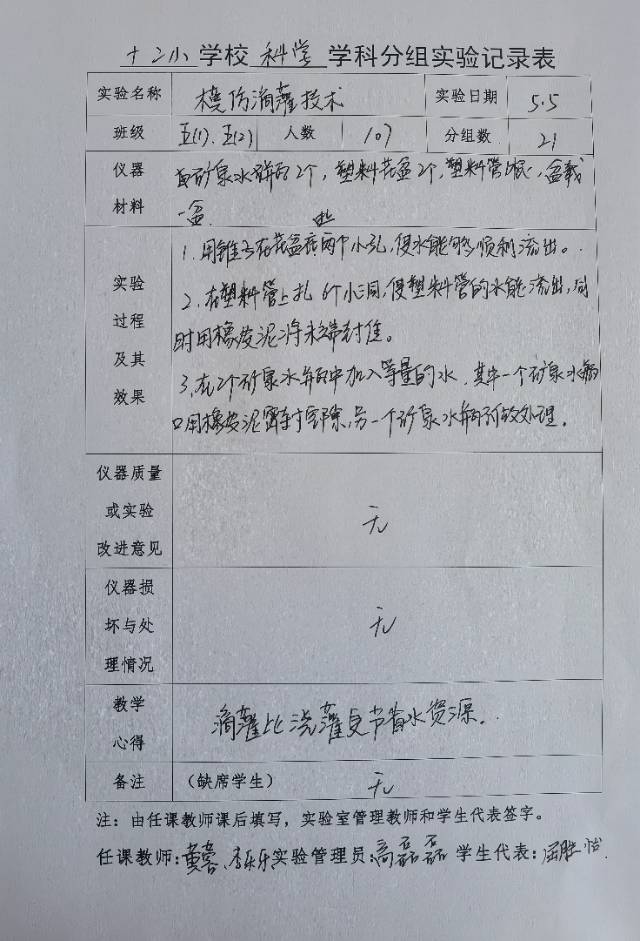 十二小学校 科学 学科分组实验记录表
实验名称 模仿滴灌技术 实验日期 5.5
班级 五(1)、五(2) 人数 107 分组数 21
仪器 矿泉水瓶2个,塑料花盆2个,塑料管1根,盆栽
材料 一盆
1.用锥子在花盆底扎两个小孔,使水能够顺利流出。
实验 2.在塑料管上扎6个小洞,使塑料管的水能流出,同
过程 时用橡皮泥将末端封住。
及其 3.在2个矿泉水瓶中加入等量的水,其中一个矿泉水瓶
效果 口用橡皮泥密封空隙,另一个矿泉水瓶不做处理。
仪器质量
或实验 无
改进意见
仪器损
坏与处 无
理情况
教学 滴灌比浇灌更节省水资源.
心得
备注 (缺席学生) 无
注:由任课教师课后填写,实验室管理教师和学生代表签字。
任课教师: 李乐乐 实验管理员:高磊磊 学生代表:屈胜怡